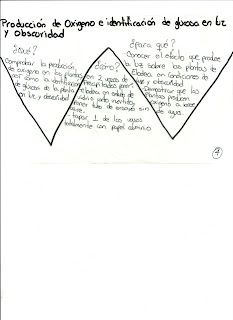 Producción de Oxígeno e identificación de glucosa en luz
y obscuridad
¿Qué?
Comprobar la producción
de oxígeno en las plantas
así como la identificación
de glucosa de la planta
en luz y obscuridad
¿Cómo?
con 2 vasos de
precipitados poner
elodea en ambos de
vidrio
tubo de ensayo sin
aire.
tapar 1 de los vasos
totalmente con papel aluminio
¿Para qué?
-Conocer el efecto que produce
la luz sobre las plantas de
Elodea en condiciones de
luz y obscuridad
-Demostrar que las
plantas producen
oxígeno a base
de agua.
4